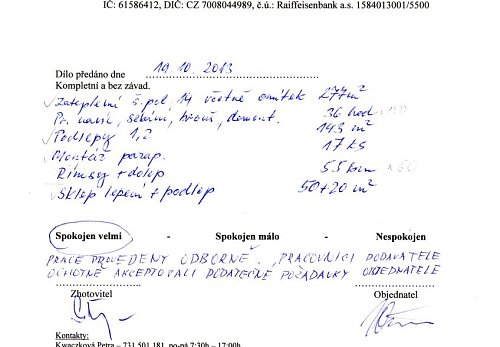 IČ: 61586412, DIČ: CZ 7008044989, č.ú.: Raiffeisenbank a.s. 1584013001/5500
Dílo předáno dne 19.10.2013
Kompletní a bez závad.
Zateplení š.pol. 14 včetně omítek 277 m²
Pr. navíc, sekání, brouš, demont. 36 hod
Podlepy 1,2 143 m²
Montáž parap. 17 ks
Římsy + dolep 55 bm
Sklep lepení + podlep 50+20 m²
Spokojen velmi - Spokojen málo - Nespokojen
PRÁCE PROVEDENY ODBORNĚ, PRACOVNÍCI DODAVATELE
OCHOTNĚ AKCEPTOVALI DODATEČNÉ POŽADAVKY OBJEDNATELE
Zhotovitel Objednatel
Kontakty:
Kwaczková Petra – 731 501 181, po-pá 7:30h – 17:00h